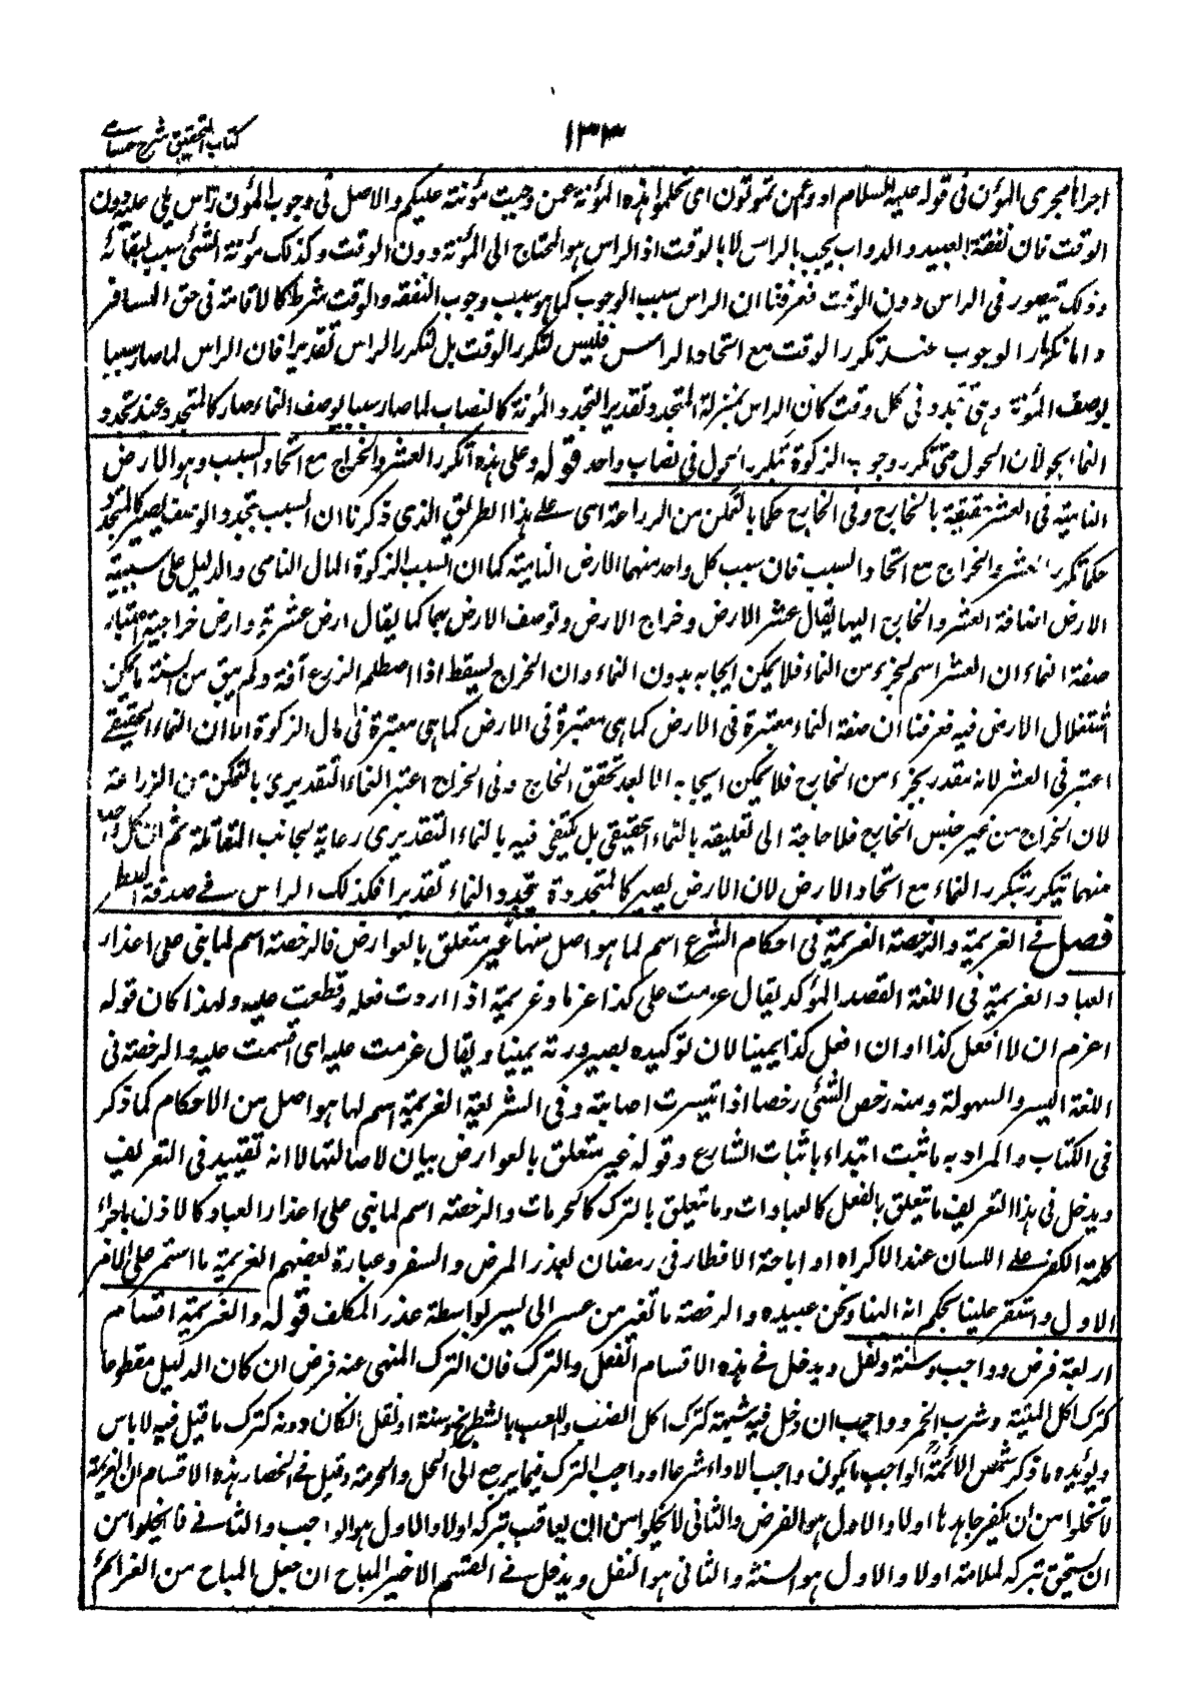 كتاب التحقيق شرح حسامي
١٣٣
اجراءً مجرى المؤن فى قوله عليه السلام ادوا عمن تمونون اى تحملوا هذه المؤنة عمن وجبت مؤنته عليكم والاصل فى وجوب المؤن رأس يلى عليه دون
الوقت فان نفقة العبيد والدواب يجب بالراس لا بالوقت اذ الراس هو المحتاج الى المؤنة دون الوقت وكذلك مؤنة الشئ سبب لبقائه
وذلك يتصور فى الراس دون الوقت فعرفنا ان الراس سبب الوجوب كما هو سبب وجوب النفقة والوقت شرط كالاقامة فى حق المسافر
واما تكرار الوجوب عند تكرر الوقت مع اتحاد الراس فليس لتكرر الوقت بل لتكرر الراس تقديرا فان الراس لما صار سببا
بوصف المؤنة وهى تجدد فى كل وقت كان الراس بمنزلة المتجدد تقديرا لتجدد المؤنة كالنصاب لما صار سببا بوصف النماء صار كالمتجدد عند تجدد
النماء بحولان الحول حتى تكرر وجوب الزكوة بتكرر الحول فى نصاب واحد قوله وعلى هذا تكرر العشر والخراج مع اتحاد السبب وهو الارض
النامية فى العشر حقيقة بالخارج وفى الخارج حكما بالتمكن من الزراعة اى على هذا الطريق الذى ذكرنا ان السبب بتجدد الوصف يصير كالمتجدد
حكما تكرر العشر والخراج مع اتحاد السبب فان سبب كل واحد منهما الارض النامية كما ان السبب الزكوة المال النامى والدليل على سببية
الارض اضافة العشر والخارج اليها يقال عشر الارض وخراج الارض وتوصف الارض بهما كما يقال ارض عشرية وارض خراجية واعتبار
صفة النماء ان العشر اسم لجزء من النماء فلا يمكن ايجابه بدون النماء وان الخراج يسقط اذا اصطلم الزرع آفة ولم يبق من السنة ما يمكن
استغلال الارض فيه فعرفنا ان صفة النماء معتبرة فى الارض كما هى معتبرة فى الارض كما هى معتبرة فى مال الزكوة الا ان النماء الحقيقى
اعتبر فى العشر لانه مقدر بجزء من الخارج فلا يمكن ايجابه الا بعد تحقق الخارج وفى الخراج اعتبر النماء التقديرى بالتمكن من الزراعة
لان الخراج من غير جنس الخارج فلا حاجة الى تعليقه بالنماء الحقيقى بل يكتفى فيه بالنماء التقديرى رعاية لجانب المقاتلة ثم ان كل واحد
منهما يتكرر بتكرر النماء مع اتحاد الارض لان الارض يصير كالمتجددة بتجدد النماء تقديرا فكذلك الراس فى صدقة الفطر
فصل فى العزيمة والرخصة العزيمة فى احكام الشرع اسم لما هو اصل منها غير متعلق بالعوارض فالرخصة اسم لما بنى على اعذار
العباد العزيمة فى اللغة القصد المؤكد يقال عزمت على كذا عزما وعزيمة اذا اردت فعله وقطعت عليه ولهذا كان قوله
اعزم ان لا افعل كذا او ان افعل كذا يمينا لان توكيده بصيرورته يمينا ويقال عزمت عليه اى اقسمت عليه والرخصة فى
اللغة اليسر والسهولة ومنه رخص الشئ رخصا اذا تيسرت اصابته وفى الشريعة العزيمة اسم لما هو اصل من الاحكام كما ذكر
فى الكتاب والمراد به ما ثبت ابتداء باثبات الشارع وقوله غير متعلق بالعوارض بيان لاصالتها لا انه تقييد فى التعريف
ويدخل فى هذا التعريف ما يتعلق بالفعل كالعبادات وما يتعلق بالترك كالحرمات والرخصة اسم لما بنى على اعذار العباد كالاذن باجراء
كلمة الكفر على اللسان عند الاكراه او اباحة الافطار فى رمضان لعذر المرض والسفر وعبارة بعضهم العزيمة ما استمر على الامر
الاول واستقر علينا بحكم انه الهنا ونحن عبيده والرخصة ما تغير من عسر الى يسر بواسطة عذر المكلف قوله والعزيمة اقسام
اربعة فرض وواجب وسنة ونفل ويدخل فى هذه الاقسام الفعل والترك فان الترك المنهى عنه فرض ان كان الدليل مقطوعا
كترك اكل الميتة وشرب الخمر وواجب ان دخل فيه شبهة كترك اكل الضب واللعب بالشطرنج وسنة او نفل ان كان دونه كترك ما قيل فيه لا باس
ويؤيده ما ذكر شمس الائمة الواجب ما يكون واجب الاداء شرعا او واجب الترك فيما يرجع الى الحل والحرمة وقيل فى انحصار هذه الاقسام ان العزيمة
لا تخلوا من ان يكفر جاحدها اولا والاول هو الفرض والثانى لا يخلوا من ان يعاقب بتركه اولا والاول هو الواجب والثانى لا يخلوا من
ان يستحق بتركه لملامة اولا والاول هو السنة والثانى هو النفل ويدخل فى القسم الاخير المباح ان جعل المباح من العزائم